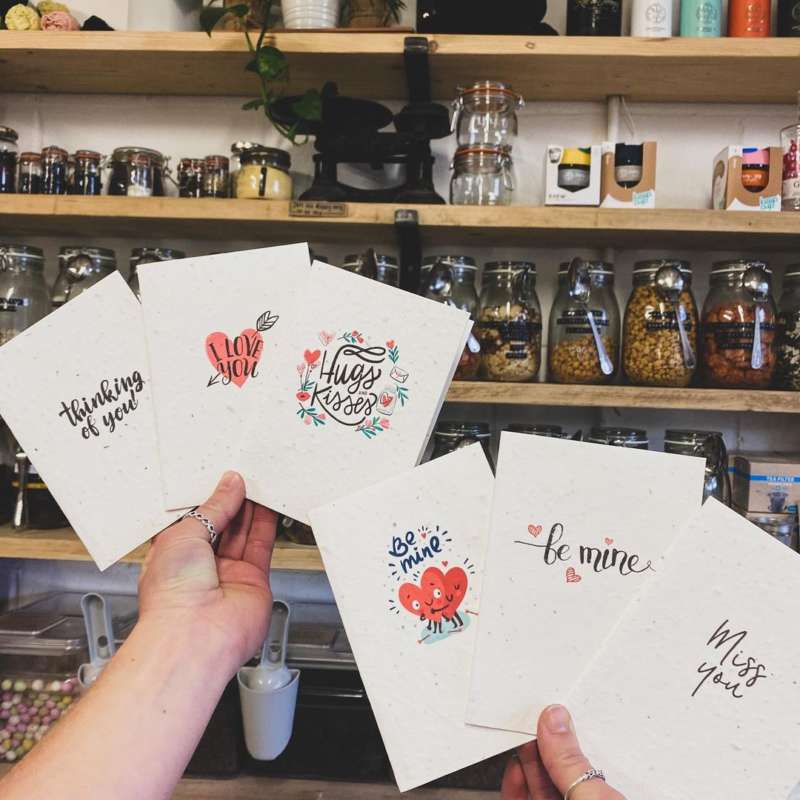 thinking
of you
I LOVE
you
Hugs
AND
Kisses
Be
mine
be mine
Miss
you
TEA FILTER